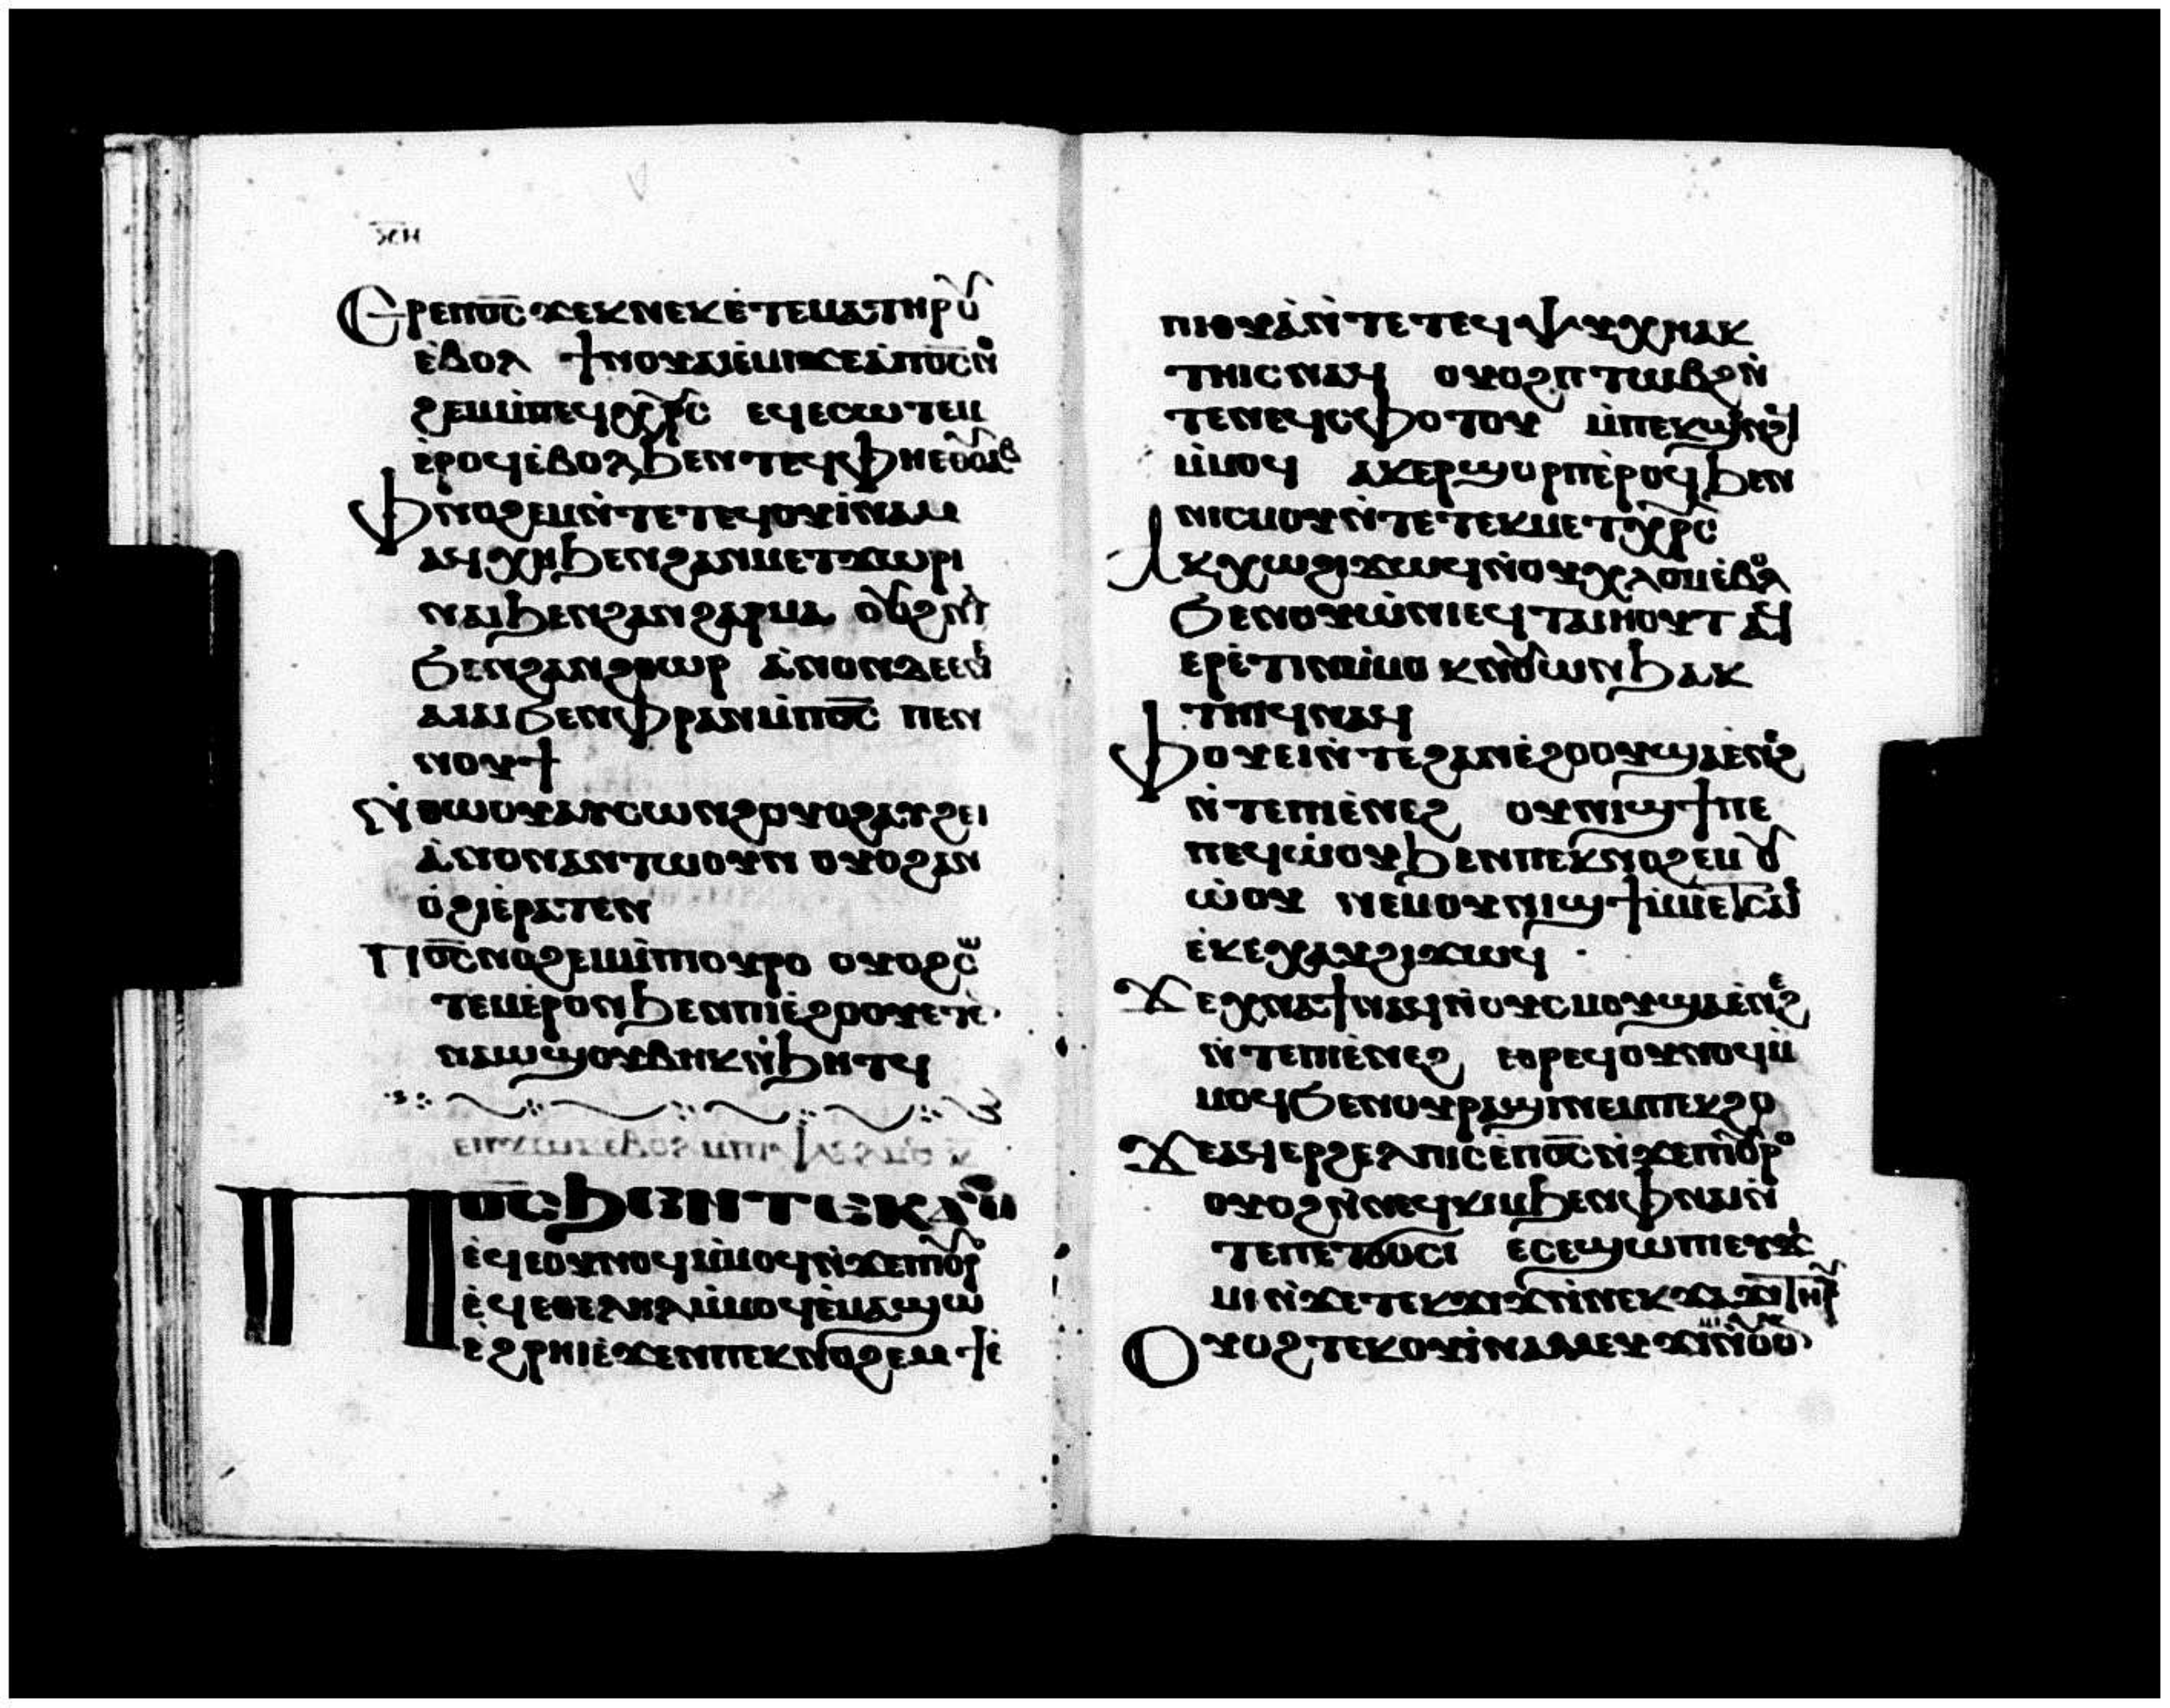 ⲝⲏ
Ⲉⲣⲉⲡⲟ̅ⲥ̅ϫⲉⲕⲛⲉⲕⲉ̀ⲧⲉⲙⲁⲧⲏⲣⲩ
ⲉ̀ⲃⲟⲗ ϯⲛⲟⲩⲁⲓⲉ̀ⲙⲓϫⲉⲁ̀ⲡⲟ̅ⲥ̅ⲛⲟ
ϩⲉⲙⲙ̀ⲡⲉϥⲭⲣ̅ⲥ̅ ⲉϥⲉⲥⲱⲧⲉⲙ
ⲉ̀ⲣⲟϥⲉ̀ⲃⲟⲗϧⲉⲛⲧⲉϥⲫⲏⲉⲑⲟⲩⲁⲃ
Ⲫⲛⲟϩⲉⲙⲛ̀ⲧⲉⲧⲉϥⲟⲩⲓ̀ⲛⲁⲙ
ⲁϥⲭⲏϧⲉⲛϩⲁⲛⲙⲉⲧϫⲱⲣⲓ
ⲛⲁⲓϧⲉⲛϩⲁⲛϩⲁⲣⲙⲁ ⲟⲩⲟϩⲛⲁⲓ
ϧⲉⲛϩⲁⲛϩⲑⲱⲣ ⲁ̀ⲛⲟⲛⲇⲉⲉⲛ
ⲁⲓⲁⲓϧⲉⲛⲫⲣⲁⲛⲙ̀ⲡⲟ̅ⲥ̅ ⲡⲉⲛ
ⲛⲟⲩϯ
Ⲛ̀ⲑⲱⲟⲩⲁⲩⲥⲱⲛϩⲟⲩⲟϩⲁⲩϩⲉⲓ
ⲁ̀ⲛⲟⲛⲁⲛⲧⲱⲟⲩⲛ ⲟⲩⲟϩⲁⲛ
ⲟ̀ϩⲓⲉ̀ⲣⲁⲧⲉⲛ
Ⲡⲟ̅ⲥ̅ⲛⲟϩⲉⲙⲙ̀ⲡⲟⲩⲣⲟ ⲟⲩⲟϩⲥⲱ
ⲧⲉⲙⲉ̀ⲣⲟⲛϧⲉⲛⲡⲓⲉ̀ϩⲟⲟⲩⲉⲧⲉ
ⲛⲁⲱϣⲟⲩⲃⲏⲕⲛ̀ϧⲏⲧϥ
Ⲡⲟ̅ⲥ̅ϧⲉⲛⲧⲉⲕϫⲟⲙ
ⲉ̀ϥⲉⲟⲩⲛⲟϥⲙ̀ⲙⲟϥⲛ̀ϫⲉⲡⲟⲩⲣⲟ
ⲉ̀ϥⲉⲑⲉⲗⲏⲗⲙ̀ⲙⲟϥⲉ̀ⲙⲁϣⲱ
ⲉ̀ϩⲣⲏⲓⲉ̀ϫⲉⲛⲡⲉⲕⲛⲟϩⲉⲙ ϯⲉ̀
ⲡⲓⲑⲩⲙⲓⲁ̀ⲛ̀ⲧⲉⲧⲉϥⲯⲩⲭⲏⲁⲕ
ⲧⲏⲓⲥⲛⲁϥ ⲟⲩⲟϩⲡⲧⲱⲃϩⲛ̀
ⲧⲉⲛⲉϥⲥⲫⲟⲧⲟⲩ ⲙ̀ⲡⲉⲕϣϥⲏϫϥ
ⲙ̀ⲙⲟϥ ⲁⲕⲉⲣϣⲟⲣⲡⲉ̀ⲣⲟϥϧⲉⲛ
ⲛⲓⲥⲙⲟⲩⲛ̀ⲧⲉⲧⲉⲕⲙⲉⲧⲭⲣ̅ⲥ̅
Ⲁⲕⲭⲱϩⲓϫⲱϥⲛ̀ⲟⲩⲭⲗⲟⲙⲉ̀ⲃⲟⲗ
ϧⲉⲛⲟⲩⲱ̀ⲛⲓⲉϥⲧⲁⲓⲏⲟⲩⲧ ⲁϥ
ⲉⲣⲉ̀ⲧⲓⲛⲙ̀ⲙⲟⲕⲛ̀ⲟⲩⲱⲛϧⲁⲕ
ⲧⲏⲓϥⲛⲁϥ
Ⲫⲟⲩⲉⲓⲛ̀ⲧⲉϩⲁⲛⲉ̀ϩⲟⲟⲩϣⲁⲉ̀ⲛⲉϩ
ⲛ̀ⲧⲉⲡⲓⲉ̀ⲛⲉϩ ⲟⲩⲛⲓϣϯⲡⲉ
ⲡⲉϥⲱ̀ⲟⲩϧⲉⲛⲡⲉⲕⲛⲟϩⲉⲙ ⲟⲩ
ⲱ̀ⲟⲩ ⲛⲉⲙⲟⲩⲛⲓϣϯⲙ̀ⲙⲉⲧⲥⲁⲓⲉ̀
ⲉⲕⲉⲭⲁⲩϩⲓϫⲱϥ
Ϫⲉⲭⲛⲁϯⲛⲁϥⲛ̀ⲟⲩⲥⲙⲟⲩϣⲁⲉ̀ⲛⲉϩ
ⲛ̀ⲧⲉⲡⲓⲉ̀ⲛⲉϩ ⲉⲑⲣⲉϥⲟⲩⲛⲟϥⲙ̀
ⲙⲟϥϧⲉⲛⲟⲩⲣⲁϣⲓⲛⲉⲙⲡⲉⲕϩⲟ
Ϫⲉⲁϥⲉⲣϩⲉⲗⲡⲓⲥⲉ̀ⲡⲟ̅ⲥ̅ⲛ̀ϫⲉⲡⲟⲩⲣⲟ
ⲟⲩⲟϩⲛ̀ⲛⲉϥⲕⲓⲙϧⲉⲛⲫⲛⲁⲓⲛ̀
ⲧⲉⲡⲉⲧϭⲟⲥⲓ ⲉⲥⲉϣⲱⲡⲓⲉⲩϫⲉ
ⲙⲓⲛ̀ϫⲉⲧⲉⲕϫⲓϫⲛ̀ⲛⲉⲕϫⲁϫⲓⲧⲏⲣⲟⲩ
Ⲟⲩⲟϩⲧⲉⲕⲟⲩⲓ̀ⲛⲁⲙⲉⲩϫⲓⲙⲓⲛ̀ⲟⲩⲟⲛ